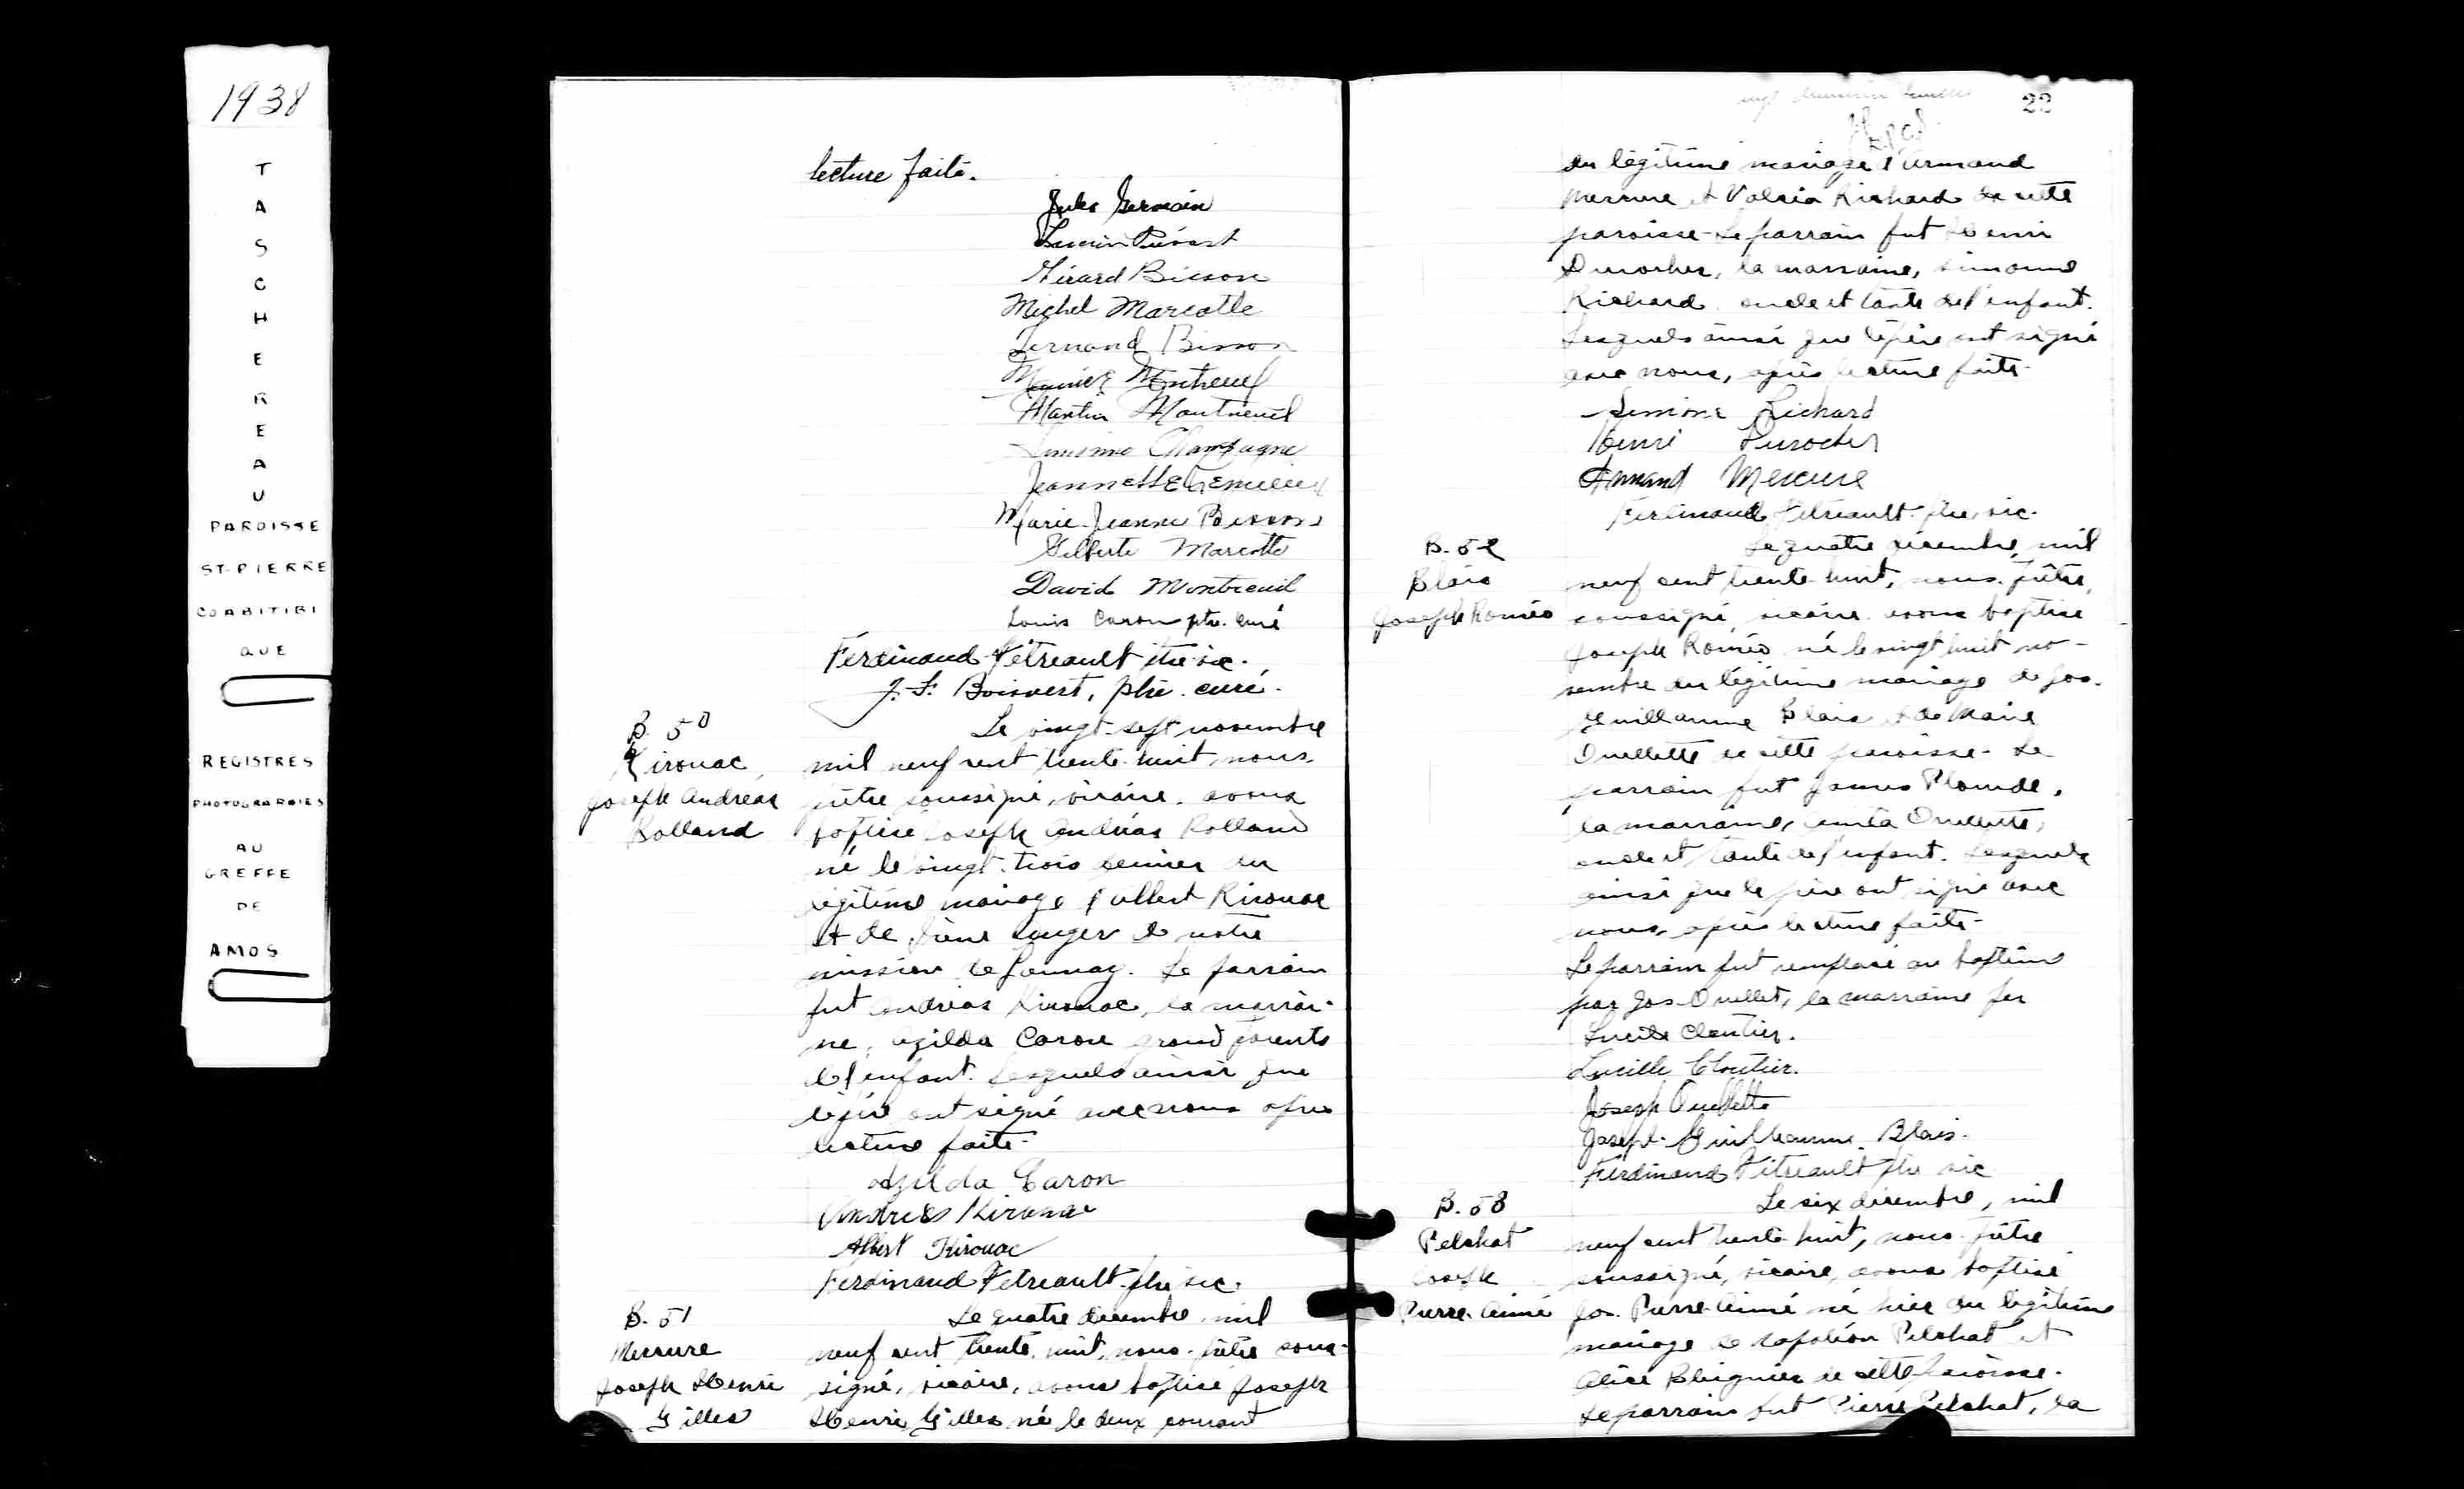 1938
TASCHEREAU
PAROISSE
ST-PIERRE
CO ABITIBI
QUE
REGISTRES
PHOTOGRAPHIES
AU
GREFFE
DE
AMOS
lecture faite.
Jules Germain
Lucien
Gérard Bisson
Michel Marcotte
Fernand Bisson
Montreuil
Martin Montreuil
Champagne
Jeannette
Marie-Jeanne Bisson
Gilberte Marcotte
David Montreuil
Louis Caron ptre. curé
Ferdinand Vétreault ptre vic.
J. F. Boisvert, ptre. curé.
B. 50
Kirouac
Joseph Andréas
Rolland
Le vingt-sept novembre
mil neuf cent trente-huit, nous,
prêtre soussigné, vicaire, avons
baptisé Joseph Andréas Rolland
né le vingt-trois dernier du
légitime mariage d'Albert Kirouac
et de Irène de notre
mission de Launay. Le parrain
fut Andréas Kirouac, la marrai-
ne, Azilda Caron grand parents
de l'enfant. Lesquels ainsi que
le père ont signé avec nous après
lecture faite-
Azilda Caron
Andréas Kirouac
Albert Kirouac
Ferdinand Vétreault ptre vic.
B. 51
Mercure
Joseph Henri
Gilles
Le quatre décembre mil
neuf cent trente-huit, nous-prêtre sous-
signé, vicaire, avons baptisé Joseph
Henri Gilles né le deux courant
22
du légitime mariage d'Armand
Mercure et Valéria Richard de cette
paroisse-Le parrain fut Henri
Durocher, la marraine, Simonne
Richard oncle et tante de l'enfant.
Lesquels ainsi que le père ont signé
avec nous, après lecture faite-
Simone Richard
Henri Durocher
Armand Mercure
Ferdinand Vétreault ptre. vic.
B. 52
Blais
Joseph Roméo
Le quatre décembre, mil
neuf cent trente-huit, nous, prêtre,
soussigné, vicaire avons baptisé
Joseph Roméo né le vingt huit no-
vembre du légitime mariage de Jos.
Guillaume Blais et de Marie
Ouellette de cette paroisse- Le
parrain fut James Plourde,
la marraine, Ouellette,
oncle et tante de l'enfant. Lesquels
ainsi que le père ont signé avec
nous, après lecture faite-
Le parrain fut remplacé au baptême
par Jos-Ouellet, la marraine par
Lucile Cloutier.
Lucille Cloutier.
Joseph Ouellette
Joseph-Guilleaume Blais.
Ferdinand Vétreault ptre vic
B. 53
Pelchat
Joseph
Pierre-Aimé
Le six décembre, mil
neuf cent trente-huit, nous-prêtre
soussigné, vicaire, avons baptisé
Jos. Pierre-Aimé né hier du légitime
mariage de Napoléon Pelchat et
Alice de cette paroisse.
Le parrain fut Pierre Pelchat, la